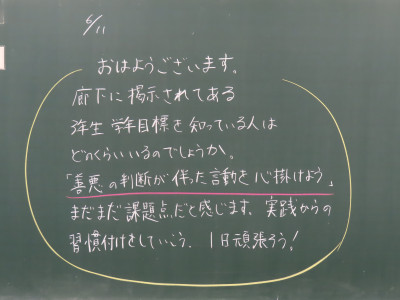 6/11
おはようございます。
廊下に掲示されてある
3年生 学年目標を知っている人は
どのくらいいるのでしょうか。
「善悪の判断が伴った言動を心掛けよう」
まだまだ課題点だと感じます。実践からの
習慣付けをしていこう。1日頑張ろう!